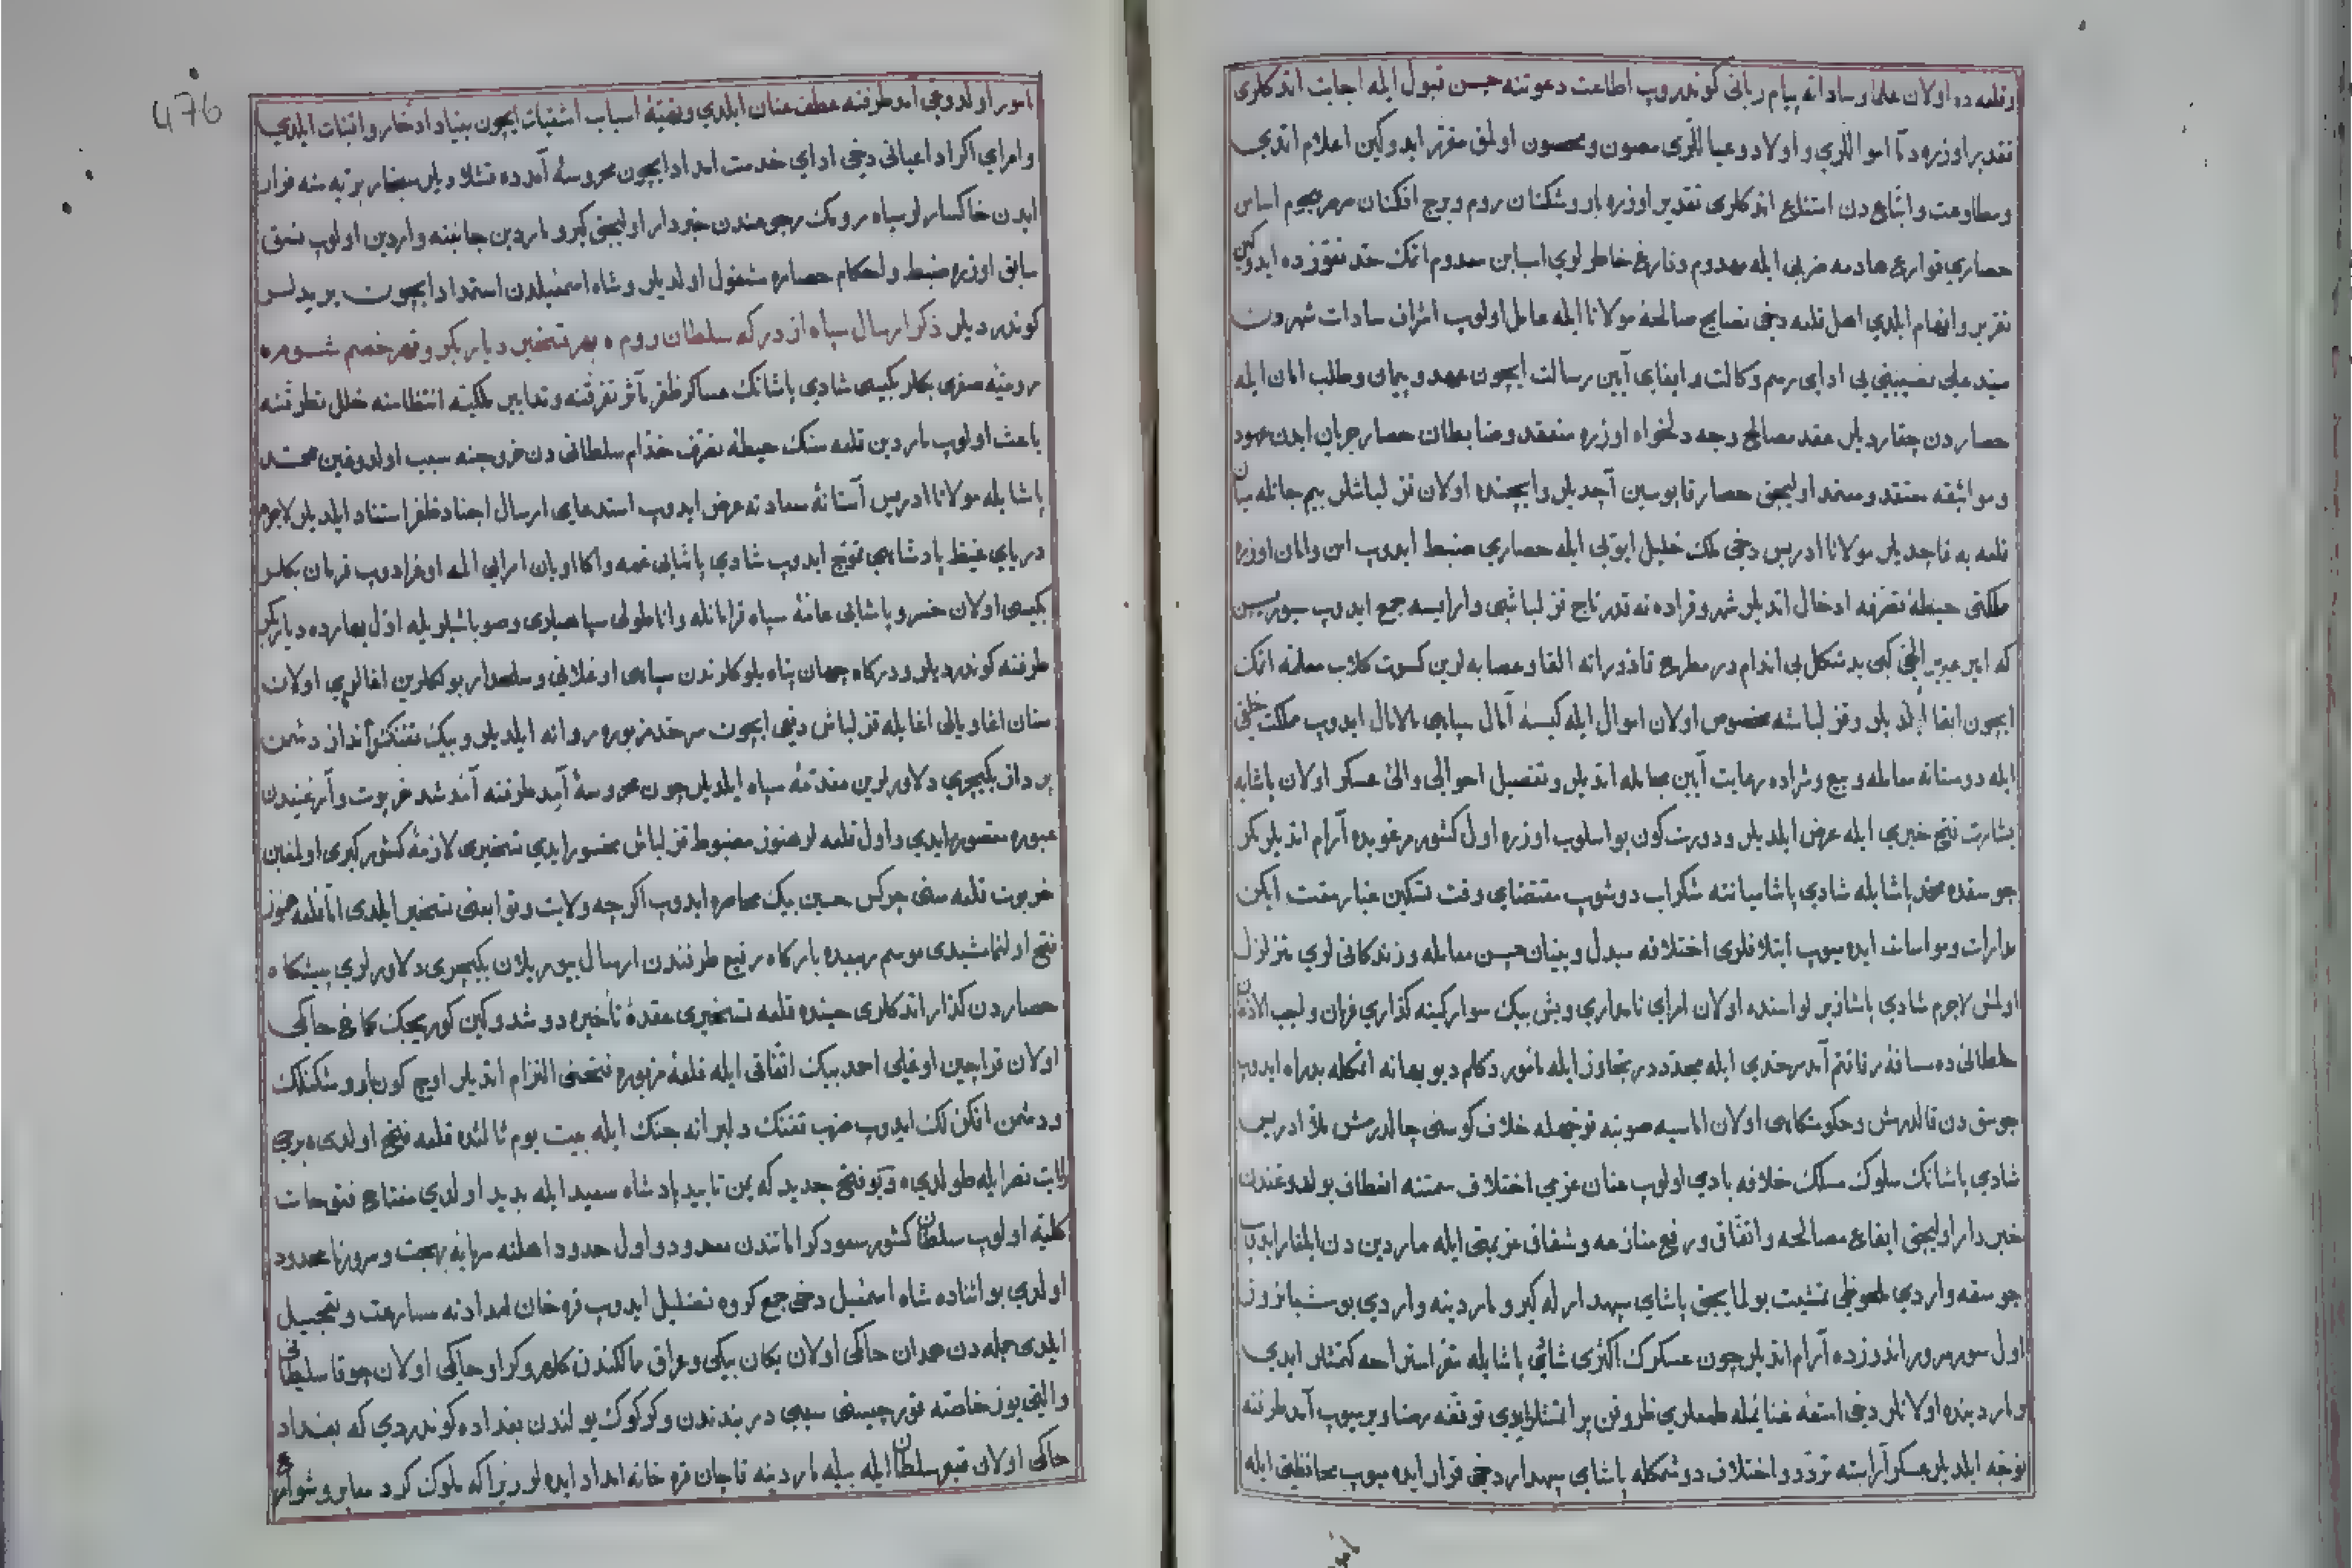 وقلعه ده اولان علما و ساداته پیام ربانی کوندروب اطاعت دعوتنه حسن قبول ایله اجابت اتدکلری
تقدیر اوزره دما اموالّلری و اولاد و عیاللّری مصون و محصون اولمق مقرّر ایدوکین اعلام اتدی
و مطاوعت و اتباع دن امتناع اتدکلری تقدیر اوزره باروشکنان روم و برج افکنان مرمر هجوم اساس
حصاری قوارع هادمه ضربی ایله مهدوم و فارغ خاطرلوی اسبابن معدوم اتمک حد تقوّزده ایدوکین
تقریر و افهام ایلدی اهل قلعه دخی نصایح صالحهٔ مولانا ایله عامل اولوب اشراف سادات شهردن
سید علی نصیبینی یی ادای رسم وکالت و ایفای آیین رسالت ایچون عهد و پیمان و طلب امان ایله
حصاردن چقاردیلر عقد مصالح وجه دلخواه اوزره منعقد و ضابطان حصار جریان ایدن عهود
و مواثقه معتقد و معتمد اولیجق حصار قاپوسین آچدیلر و ایچنده اولان قزلباشلر بیم جانله میان
قلعه یه قاچدیلر مولانا ادریس دخی ملک خلیل ایوبی ایله حصاری ضبط ایدوب امن و امان اوزره
مملکتی حیطهٔ تصرّفه ادخال اتدیلر شهر و قراده نه قدر تاج قزلباشی وارایسه جمع ایدوب سوریسن
که ایر عریر الخی کبی بدشکل بی اندام در مطرح قاذوراته القا و عصابه لرین کسوت کلاب معلنه اتمک
ایچون ابقا ایلدیلر و قزلباشه مخصوص اولان اموال ایله کیسهٔ آمال سپاهی مالامال ایدوب مملکت خلقی
ایله دوستانه معامله و بیع و شراده رعایت آیین مجامله اتدیلر و تفصیل احوالی والئ عسکر اولان پاشایه
بشارت فتح خبری ایله عرض ایلدیلر و دورت کون بو اسلوب اوزره اول کشور مرغوبده آرام اتدیلر مکر
جوسقده محمد پاشا یله شادی پاشا میاننه شکراب دوشوب مقتضای وقت تسکین غبار مقت ایکن
مدارات و مواسات ایده میوب ایتلافلری اختلافه مبدل و بنیان حسن معامله و زندکانی لوی متزلزل
اولمش لاجرم شادی پاشا زیر لواسنده اولان امرای نامداری و بش بیک سوار کینه کذاری فرمان واجب الاذعان
سلطانی ده مسافهٔ رفاقتم آمد سرحدی ایله محدّد در تجاوز ایله مأمور دکلم دیو بهانه اتمکله بدراه ایدوب
جوسق دن قالدرمش و حکومتکاهی اولان اماسیه صوبنه توجهله خلاف کوسنی چالدرمش ملا ادریس
شادی پاشانک سلوک مسلک خلافه بادی اولوب عنان عزمی اختلاف سمتنه انعطاف بولدوغندن
خبردار اولیجق ایقاع مصالحه و اتفاق و رفع منازعه و شقاق عزیمتی ایله ماردین دن ایلغار ایدوب
جوسقه واردی ملحوظی تمشیت بولمایجق پاشای سپهدار له کیرو ماردینه واردی بو شبانروز
اول سور سرور اندوزده آرام اتدیلر چون عسکرک اکثری شادی پاشا یله مقر استراحه کتمشلر ایدی
و ماردینده اولانلر دخی امتعهٔ غنایمله طمعلری ظروفن پر اتمشلر ایدی توقفه رضا ویرمیوب آمد طرفنه
توجّه ایلدیلر عسکر آراسته تردّد و اختلاف دوشمکله پاشای سپهدار دخی قرار ایده میوب محافظتی ایله
مأمور اولدوغی آمد طرفنه عطف عنان ایلدی و بقیّهٔ اسباب اشقیات ایچون بنیاد ادخار و اقتنات ایلدی
و امرای اکراد اعیانی دخی ادای خدمت امداد ایچون محروسهٔ آمدده قشلادیلر سنجار برّیه سنه فرار
ایدن خاکسارلو سپاه رومک رجوعندن خبردار اولیجق کیرو ماردین جانبنه واردین اولوب نسق
سابق اوزره ضبط و احکام حصاره مشغول اولدیلر و شاه اسمعیلدن استمداد ایچون بریدلر
کوندردیلر ذکر ارسال سپاه از درکه سلطان روم ه بهر تسخیر دیار بکر و قهر خصم شوم ه
رومیّهٔ صغری بکلربکیسی شادی پاشانک عساکر ظفر مآثر تفرقنه و تدابیر ملکیّه انتظامنه خلل تطرقنه
باعث اولوب ماردین قلعه سنک حیطهٔ تصرّف خدّام سلطانی دن خروجنه سبب اولدوغین محمّد
پاشا یله مولانا ادریس آستانهٔ سعادته عرض ایدوب استدعای ارسال اجناد ظفر استناد ایلدیلر لاجرم
دریای غیظ پادشاهی تموّج ایدوب شادی پاشایی غمه و اکا اویان امرایی المه اوغرادوب قرمان بکلر
بکیسی اولان خسرو پاشایی عامّهٔ سپاه قرامانله و اناطولی سپاهیلری و صوباشیلریله اوّل بهارده دیار بکر
طرفنه کوندردیلر و درکاه جهان پناه بلوکلرندن سپاهی اوغلانی و سلحدار بولکلرین اغالری اولان
سنان اغا و یالی اغا یله قزلباش دفعی ایچون سرحد مزبوره روانه ایلدیلر و بیک تفنک انداز دشمن
پرداز یکیچری دلاورلرین مقدّمهٔ سپاه ایلدیلر چون محروسهٔ آمد طرفنه آمد شد خرپوت و آرغنیدن
عبوره مقصور ایدی و اول قلعه لر هنوز مضبوط قزلباش منحوس ایدی تسخیری لازمهٔ کشورکیری اولمغین
خرپوت قلعه سنی چرکس حسین بیک محاصره ایدوب اکرچه ولایت و توابعنی تسخیر ایلدی اما قلعه هنوز
فتح اولنمامشیدی موسم ربیعده بارکاه رفیع طرفندن ارسال بیوریلان یکیچری دلاورلری پیشکاه
حصاردن کذار اتدکلری حینده قلعه تسخیری عقدهٔ تأخیره دوشدوکین کوریجک کماخ حاکمی
اولان قراچین اوغلی احمد بیک اتفاقی ایله قلعهٔ مزبوره فتحنی التزام اتدیلر اوچ کون باروشکنلک
و دشمن افکن لک ایدوب ضرب تفنک دلیرانه جنک ایله بیت یوم ثالثده قلعه فتح اولدی ه برجی
رایت نصر ایله طولدی ه و بو فتح جدید که یمن تایید پادشاه سعید ایله بدید اولدی مفتاح فتوحات
کلیّه اولوب سلطان کشور سعود کراماتندن معدود و اول حدود اهلنه سرمایهٔ بهجت و سرور نامحدود
اولدی بو اثناده شاه اسمعیل دخی جمع کروه تضلیل ایدوب قره خان امدادنه مسارعت و تعجیل
ایلدی جمله دن همدان حاکمی اولان یکان بیکی و عراق ممالکندن کلهر و کراو حاکمی اولان چوقا سلطانی
و التی یوز خاصّه قورچیسنی سیبی دربندندن و کرکوک یولندن بغداده کوندردی که بغداد
حاکمی اولان قنغر سلطان ایله بیله ماردینه قاچان قره خانه امداد ایده لر زیرا که ملوک کرد معابر و شوارع